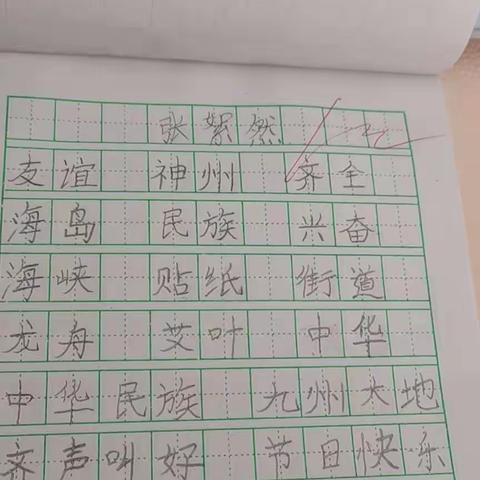 张絮然
友谊 神州 齐全
海岛 民族 兴奋
海峡 贴纸 街道
龙舟 艾叶 中华
中华民族 九州大地
齐声叫好 节日快乐